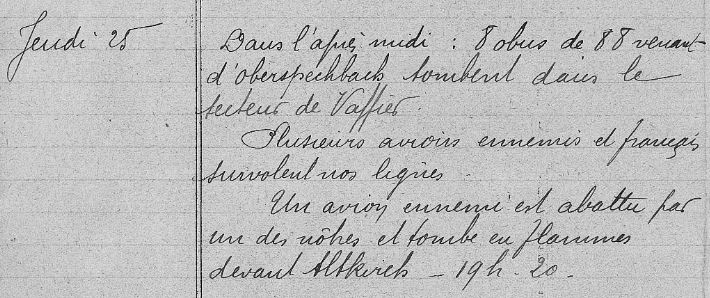 Jeudi 25
Dans l'après midi : 8 obus de 88 venant
d'oberspechbach tombent dans le
secteur de Vaffier.
Plusieurs avions ennemis et français
survolent nos lignes.
Un avion ennemi est abattu par
un des nôtres et tombe en flammes
devant Altkirch - 19h. 20.